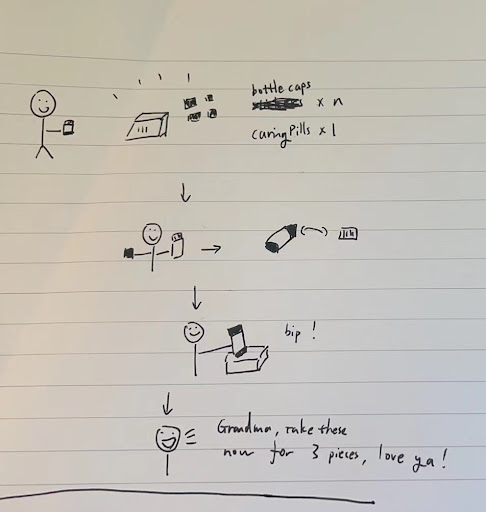 bottle caps
x n
caring pills x 1
bip !
Grandma, take these
now for 3 pieces, love ya !